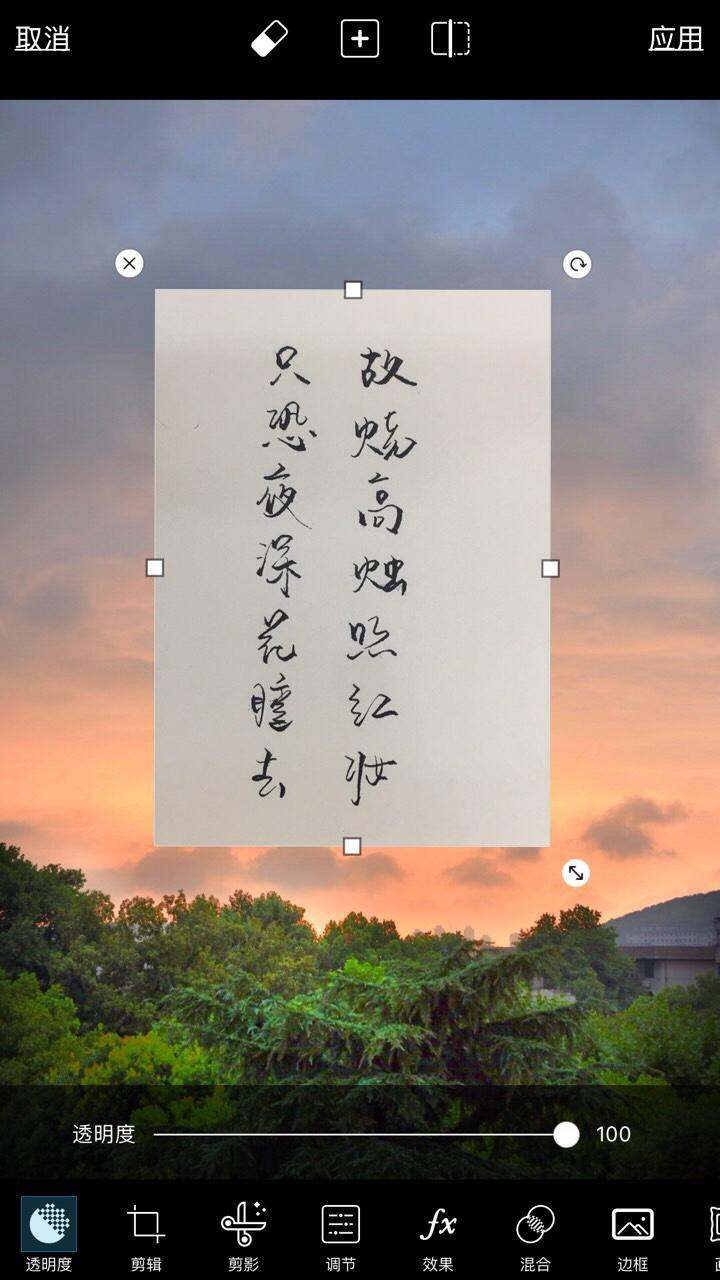 取消
应用
故烧高烛照红妆
只恐夜深花睡去
透明度 100
透明度 剪辑 剪影 调节 效果 混合 边框